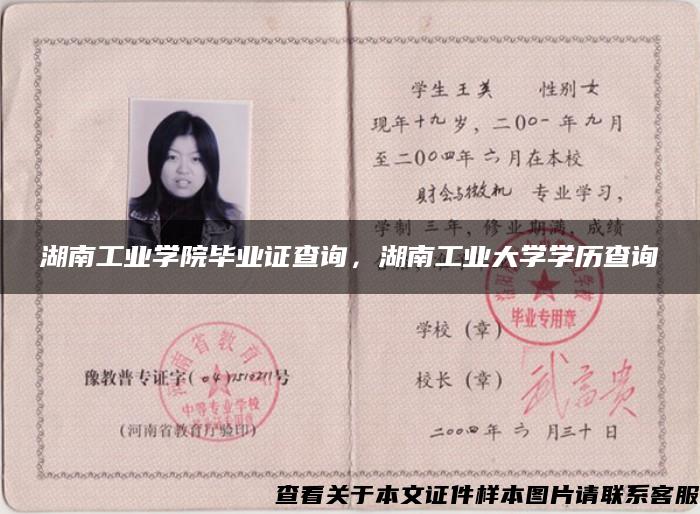 学生王美 性别女
现年十九岁，二00一年九月
至二00四年六月在本校
财会与微机 专业学习，
学制三年，修业期满，成绩
湖南工业学院毕业证查询，湖南工业大学学历查询
毕业专用章
学校（章）
河南省教育厅
豫教普专证字(0417510211号
中等专业学校
毕业证专用章
校长（章）
武富贵
(河南省教育厅验印)
二00四年六月三十日
查看关于本文证件样本图片请联系客服